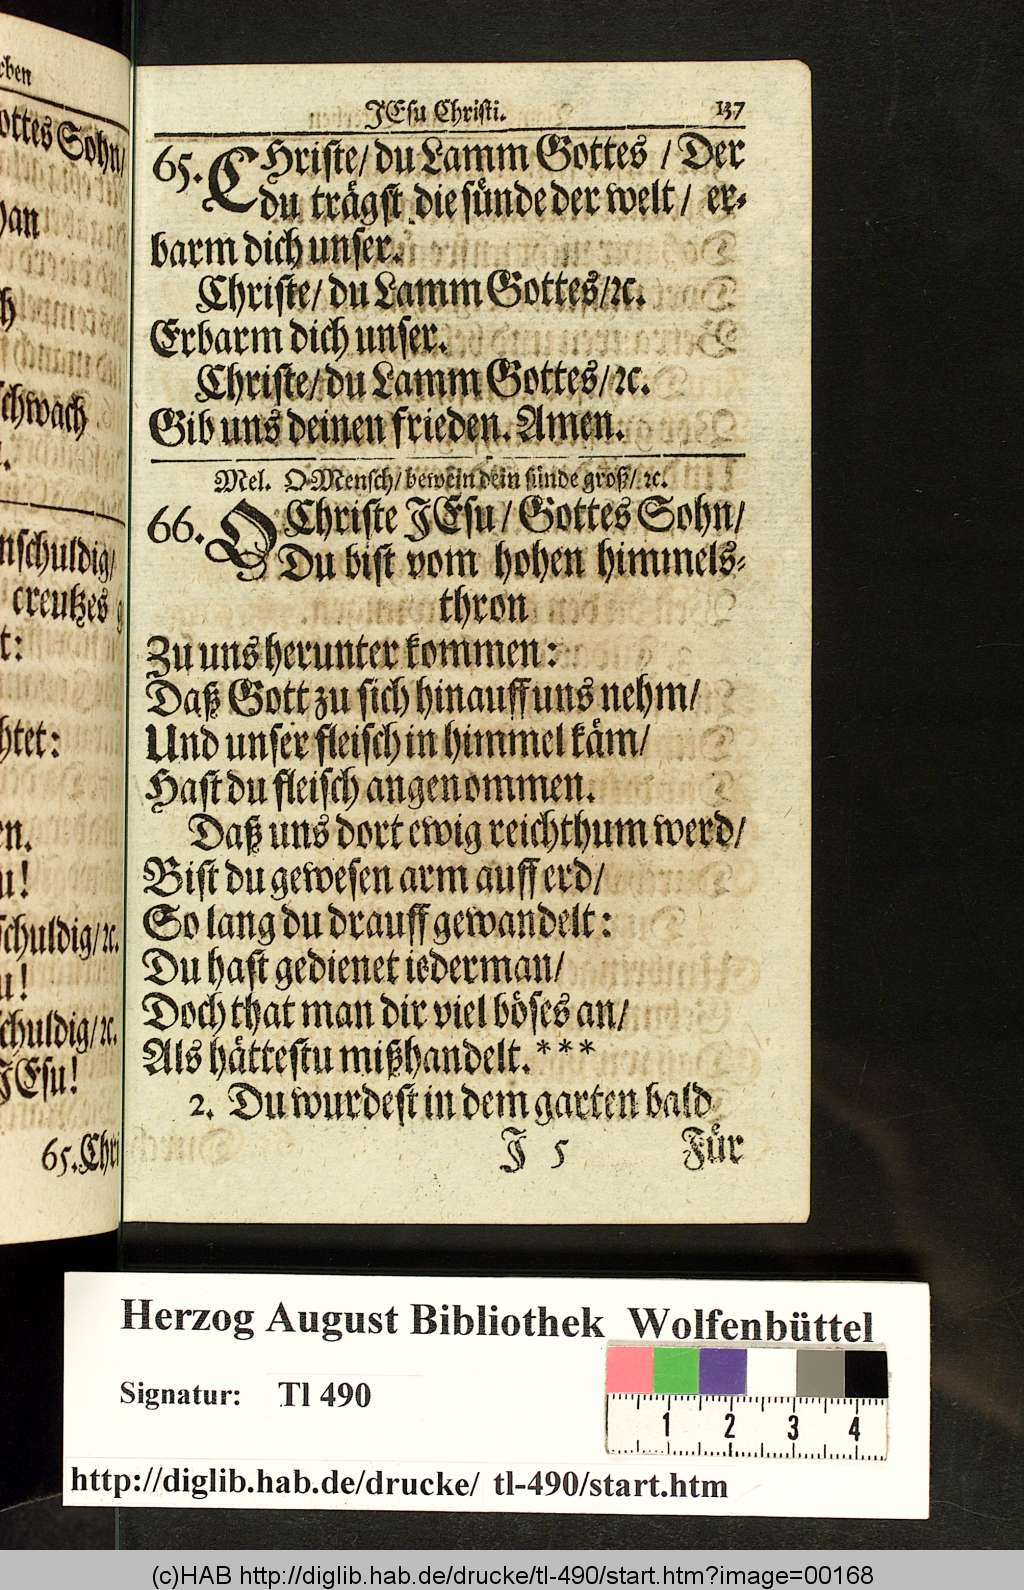 rben
ottes Sohn/
han
ch
schwach
nschuldig/
creutzes
t:
htet:
en.
u!
schuldig/ꝛc.
u!
schuldig/ꝛc.
JEsu!
65. Chri
JEsu Christi. 137
65. CHriste/ du Lamm Gottes / Der
du trägst die sünde der welt / er-
barm dich unser.
Christe/ du Lamm Gottes/ꝛc.
Erbarm dich unser.
Christe/ du Lamm Gottes/ꝛc.
Gib uns deinen frieden. Amen.
Mel. O Mensch/ bewein dein sünde groß/ ꝛc.
66. O Christe JEsu/ Gottes Sohn/
Du bist vom hohen himmels-
thron
Zu uns herunter kommen:
Daß Gott zu sich hinauff uns nehm/
Und unser fleisch in himmel käm/
Hast du fleisch angenommen.
Daß uns dort ewig reichthum werd/
Bist du gewesen arm auff erd/
So lang du drauff gewandelt:
Du hast gedienet iederman/
Doch that man dir viel böses an/
Als hättestu mißhandelt. * * *
2. Du wurdest in dem garten bald
J 5 Für
Herzog August Bibliothek Wolfenbüttel
Signatur: Tl 490
1 2 3 4
http://diglib.hab.de/drucke/ tl-490/start.htm
(c)HAB http://diglib.hab.de/drucke/tl-490/start.htm?image=00168